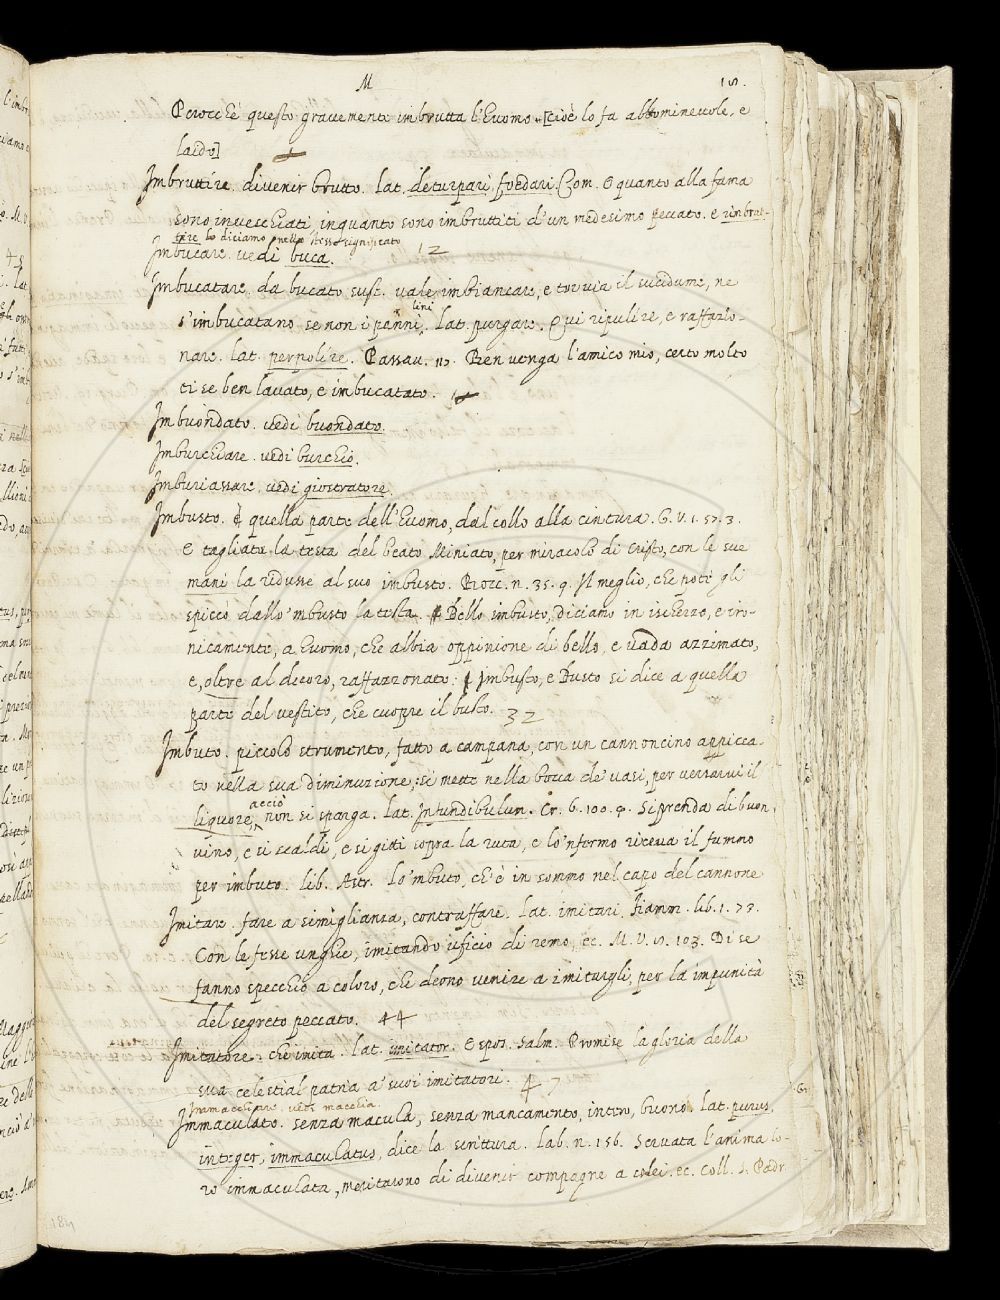 M
Perocchè questo gravemente imbrutta l'Huomo [cioè lo fa abbominevole, e
laido]
Imbruttíre. divenir brutto. lat. deturpari, foedari. Com. E quanto alla fama
sono invescchiati inquanto sono imbruttiti d'un medesimo peccato. e rinbrut-
tire lo diciamo nello stesso significato
Imbucare. vedi buca. 12
Imbucatare. da bucato sust. vale imbiancare, e tor via il sucidume, ne
lini
s'imbucatano se non i panni. lat. purgare. Qui ripulíre, e raffazio-
nare. lat. perpolíre. Passav. 110. Ben venga l'amico mio, certo molto
ti se ben lavato, e imbucatato.
Imbuondato. vedi buondato.
Imburchiare. vedi burchio.
Imburiassare. vedi giostratore.
Imbusto. è quella parte dell'Huomo, dal collo alla cintura. G. V. 1. 57. 3.
E tagliata la testa del beato Miniato, per miracolo di Cristo, con le sue
mani la ridusse al suo imbusto. Bocc. n. 35. 9. Il meglio, che potè gli
spiccò dallo 'mbusto la testa. Bello imbusto, diciamo in ischerzo, e iro-
nicamente, a Huomo, che abbia oppinione di bello, e vada azzimato,
e, oltre al decoro, raffazzonato: Imbusto, e Busto si dice a quella
parte del vestito, che cuopre il busto. 32
Imbuto. piccolo strumento, fatto a campana, con un cannoncino appicca-
to nella sua diminuzione, si mette nella bocca de' vasi, per versarvi il
acciò
liquore, non si sparga. lat. Infundibulum. Cr. 6. 100. 4. Si prenda di buon
vino, e si scaldi, e si gitti sopra la ruta, e lo 'nfermo riceva il fummo
per imbuto. lib. Astr. Lo 'mbuto, ch'è in sommo nel capo del cannone
Imitare. fare a simiglianza, contraffare. lat. imitari. Fiamm. lib. 1. 73.
Con le fesse unghie, imitando uficio di remo, ec. M. V. 103. Di se
fanno specchio a coloro, che deono venire a imitargli, per la impunità
del segreto peccato. 44
Imitatore. che imita. lat. imitator. Espos. Salm. Promise la gloria della
sua celestial patria a' suoi imitatori. 47
Immacchiare. vedi macchia.
Immaculato. senza macula, senza mancamento, intero, buono. lat. purus,
integer, immaculatus, dice la scrittura. Lab. n. 156. Servata l'anima lo-
ro immaculata, meritarono di divenir compagne a colei. ec. Coll. S. Padr